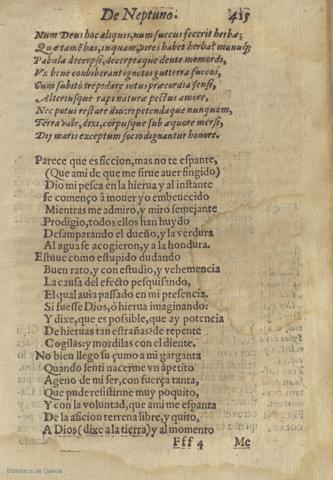 De Neptuno. 415
Num Deus hoc aliquis, num succus fecerit herbæ;
Quæ tamē has, inquam, vires habet herba? manuq;
Pabula decerpsi, decerptaque dente momordi,
Vx bene conbiberant ignotos guttura succos,
Cum subitò trepidare intus præcordia sensi,
Alteriusque rapi naturæ pectus amore,
Nec potui restare diu: repetendaque nunquam,
Terra vale, dixi, corpusque sub æquore mersi,
Dij maris exceptum socio dignantur honore.
Parece que es ficcion, mas no te espante,
(Que ami de que me sirue auer fingido)
Dio mi pesca en la hierua y al instante
se començo à mouer yo embeuecido
Mientras me admiro, y miro semejante
Prodigio, todos ellos han huydo
Desamparando el dueño, y la verdura
Al agua se acogieron, y a la hondura.
Estuue como estupido dudando
Buen rato, y con estudio, y vehemencia
La causa del efecto pesquisando,
El qual auia passado en mi presencia.
Si fuesse Dios, ò hierua imaginando:
Y dixe, que es possible, que ay potencia
De hieruas tan estrañas? de repente
Cogilas: y mordilas con el diente.
No bien llego su çumo a mi garganta
Quando senti nacerme vn apetito
Ageno de mi ser, con fuerça tanta,
Que pude resistirme muy poquito,
Y con la voluntad, que ami me espanta
De la aficion terrena libre, y quito,
A Dios (dixe a la tierra) y al momento
Fff 4 Me
Biblioteca de Galicia